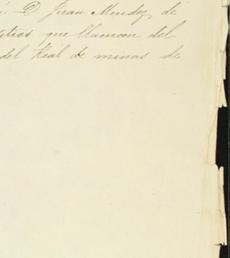 á D. Juan Mendez, de
que llamaron del
del Real de minas de